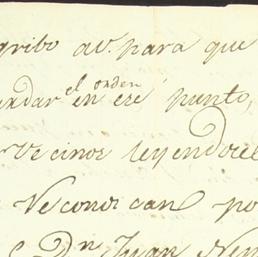 gribo av. para que
undar el orden en ese punto,
Vecinos leyendosel
Vesconos can po
Dn Juan Nem